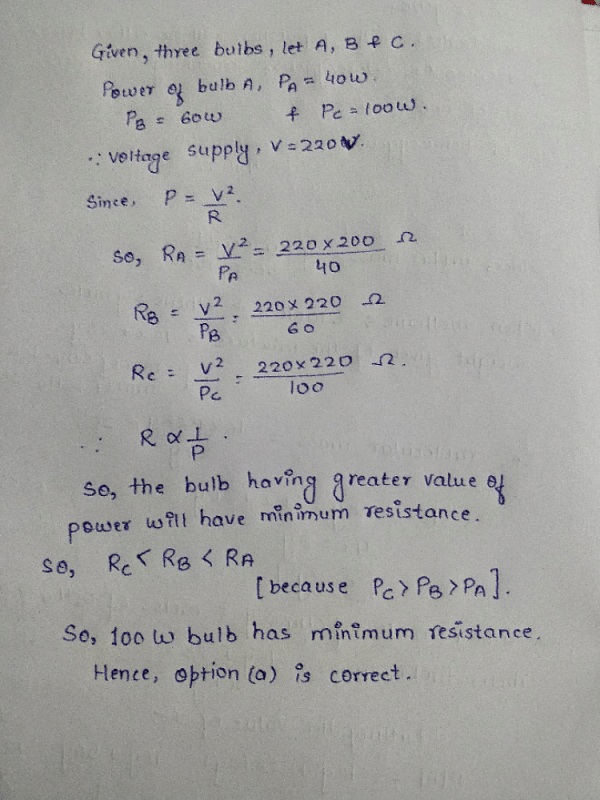 Given, three bulbs, let A, B & C.
Power of bulb A, PA = 40W.
PB = 60W & PC = 100W.
∴ Voltage supply, V = 220V.
Since, P = V²/R.
So, RA = V²/PA = 220 × 200/40 Ω
RB = V²/PB = 220 × 220/60 Ω
RC = V²/PC = 220 × 220/100 Ω.
∴ R ∝ 1/P.
So, the bulb having greater value of
power will have minimum resistance.
So, RC < RB < RA
[because PC > PB > PA].
So, 100 W bulb has minimum resistance.
Hence, option (a) is correct.